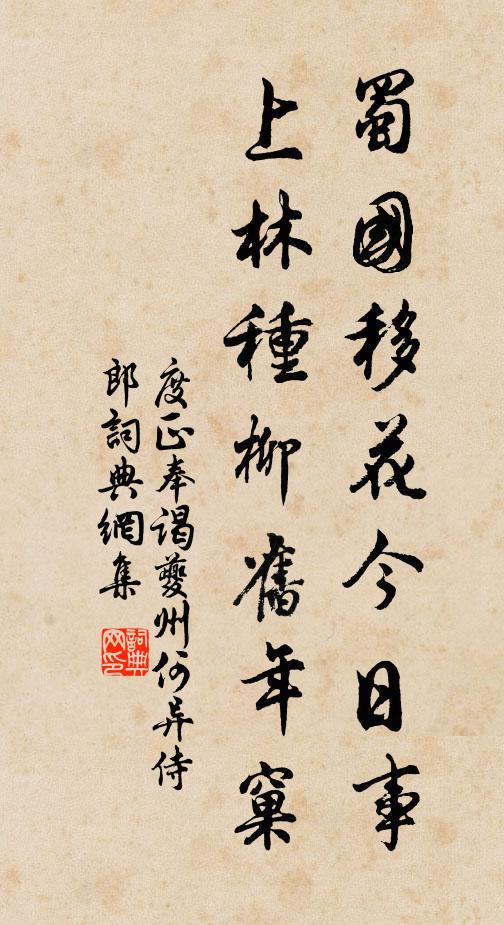 蜀國移花今日事
上林種柳舊年窠
度正奉謁夔州何异侍
郎詞典網集
詞典网印